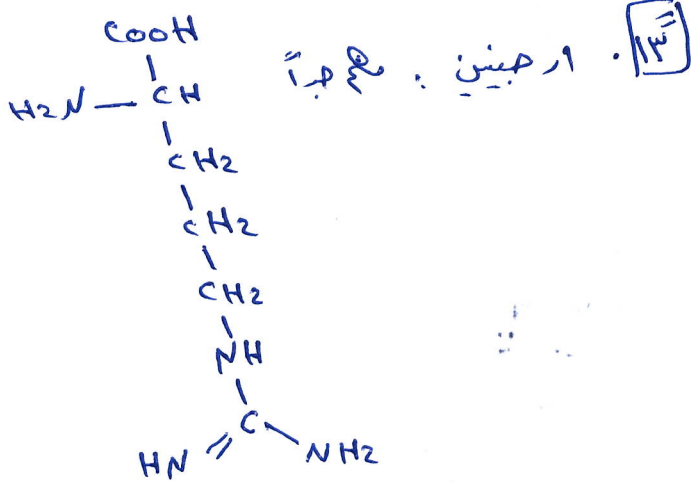 ١٣ . ارجينين . مهم جداً
COOH
H2N — CH
CH2
CH2
CH2
NH
C
HN NH2